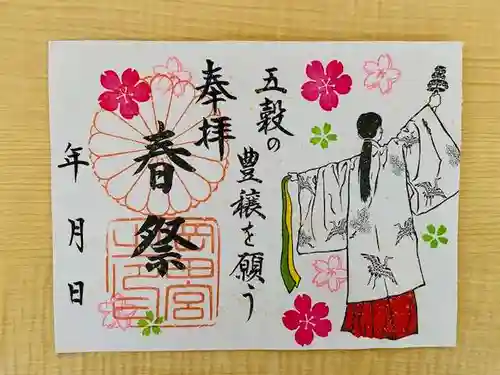 五穀の
豊穣を願う
奉拝
春祭
年月日